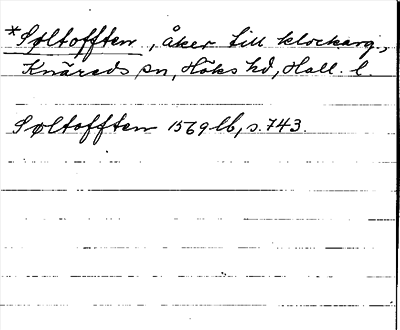 *Søltofften, åker till klockarg.,
Knäreds sn, Höks hd, Hall. l.
Søltofften 1569 lb, s. 743.